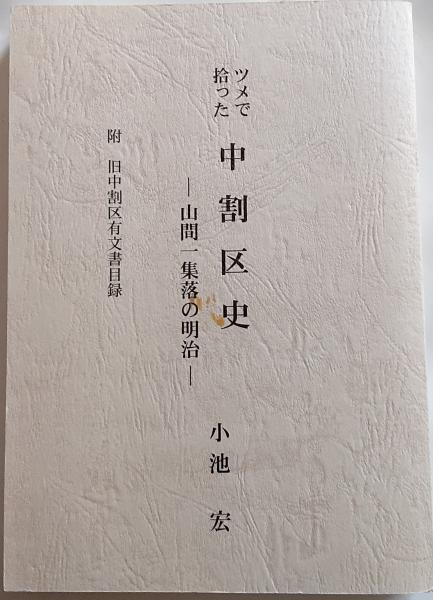 ツメで
拾った
中割区史
―山間一集落の明治―
小池 宏
附 旧中割区有文書目録